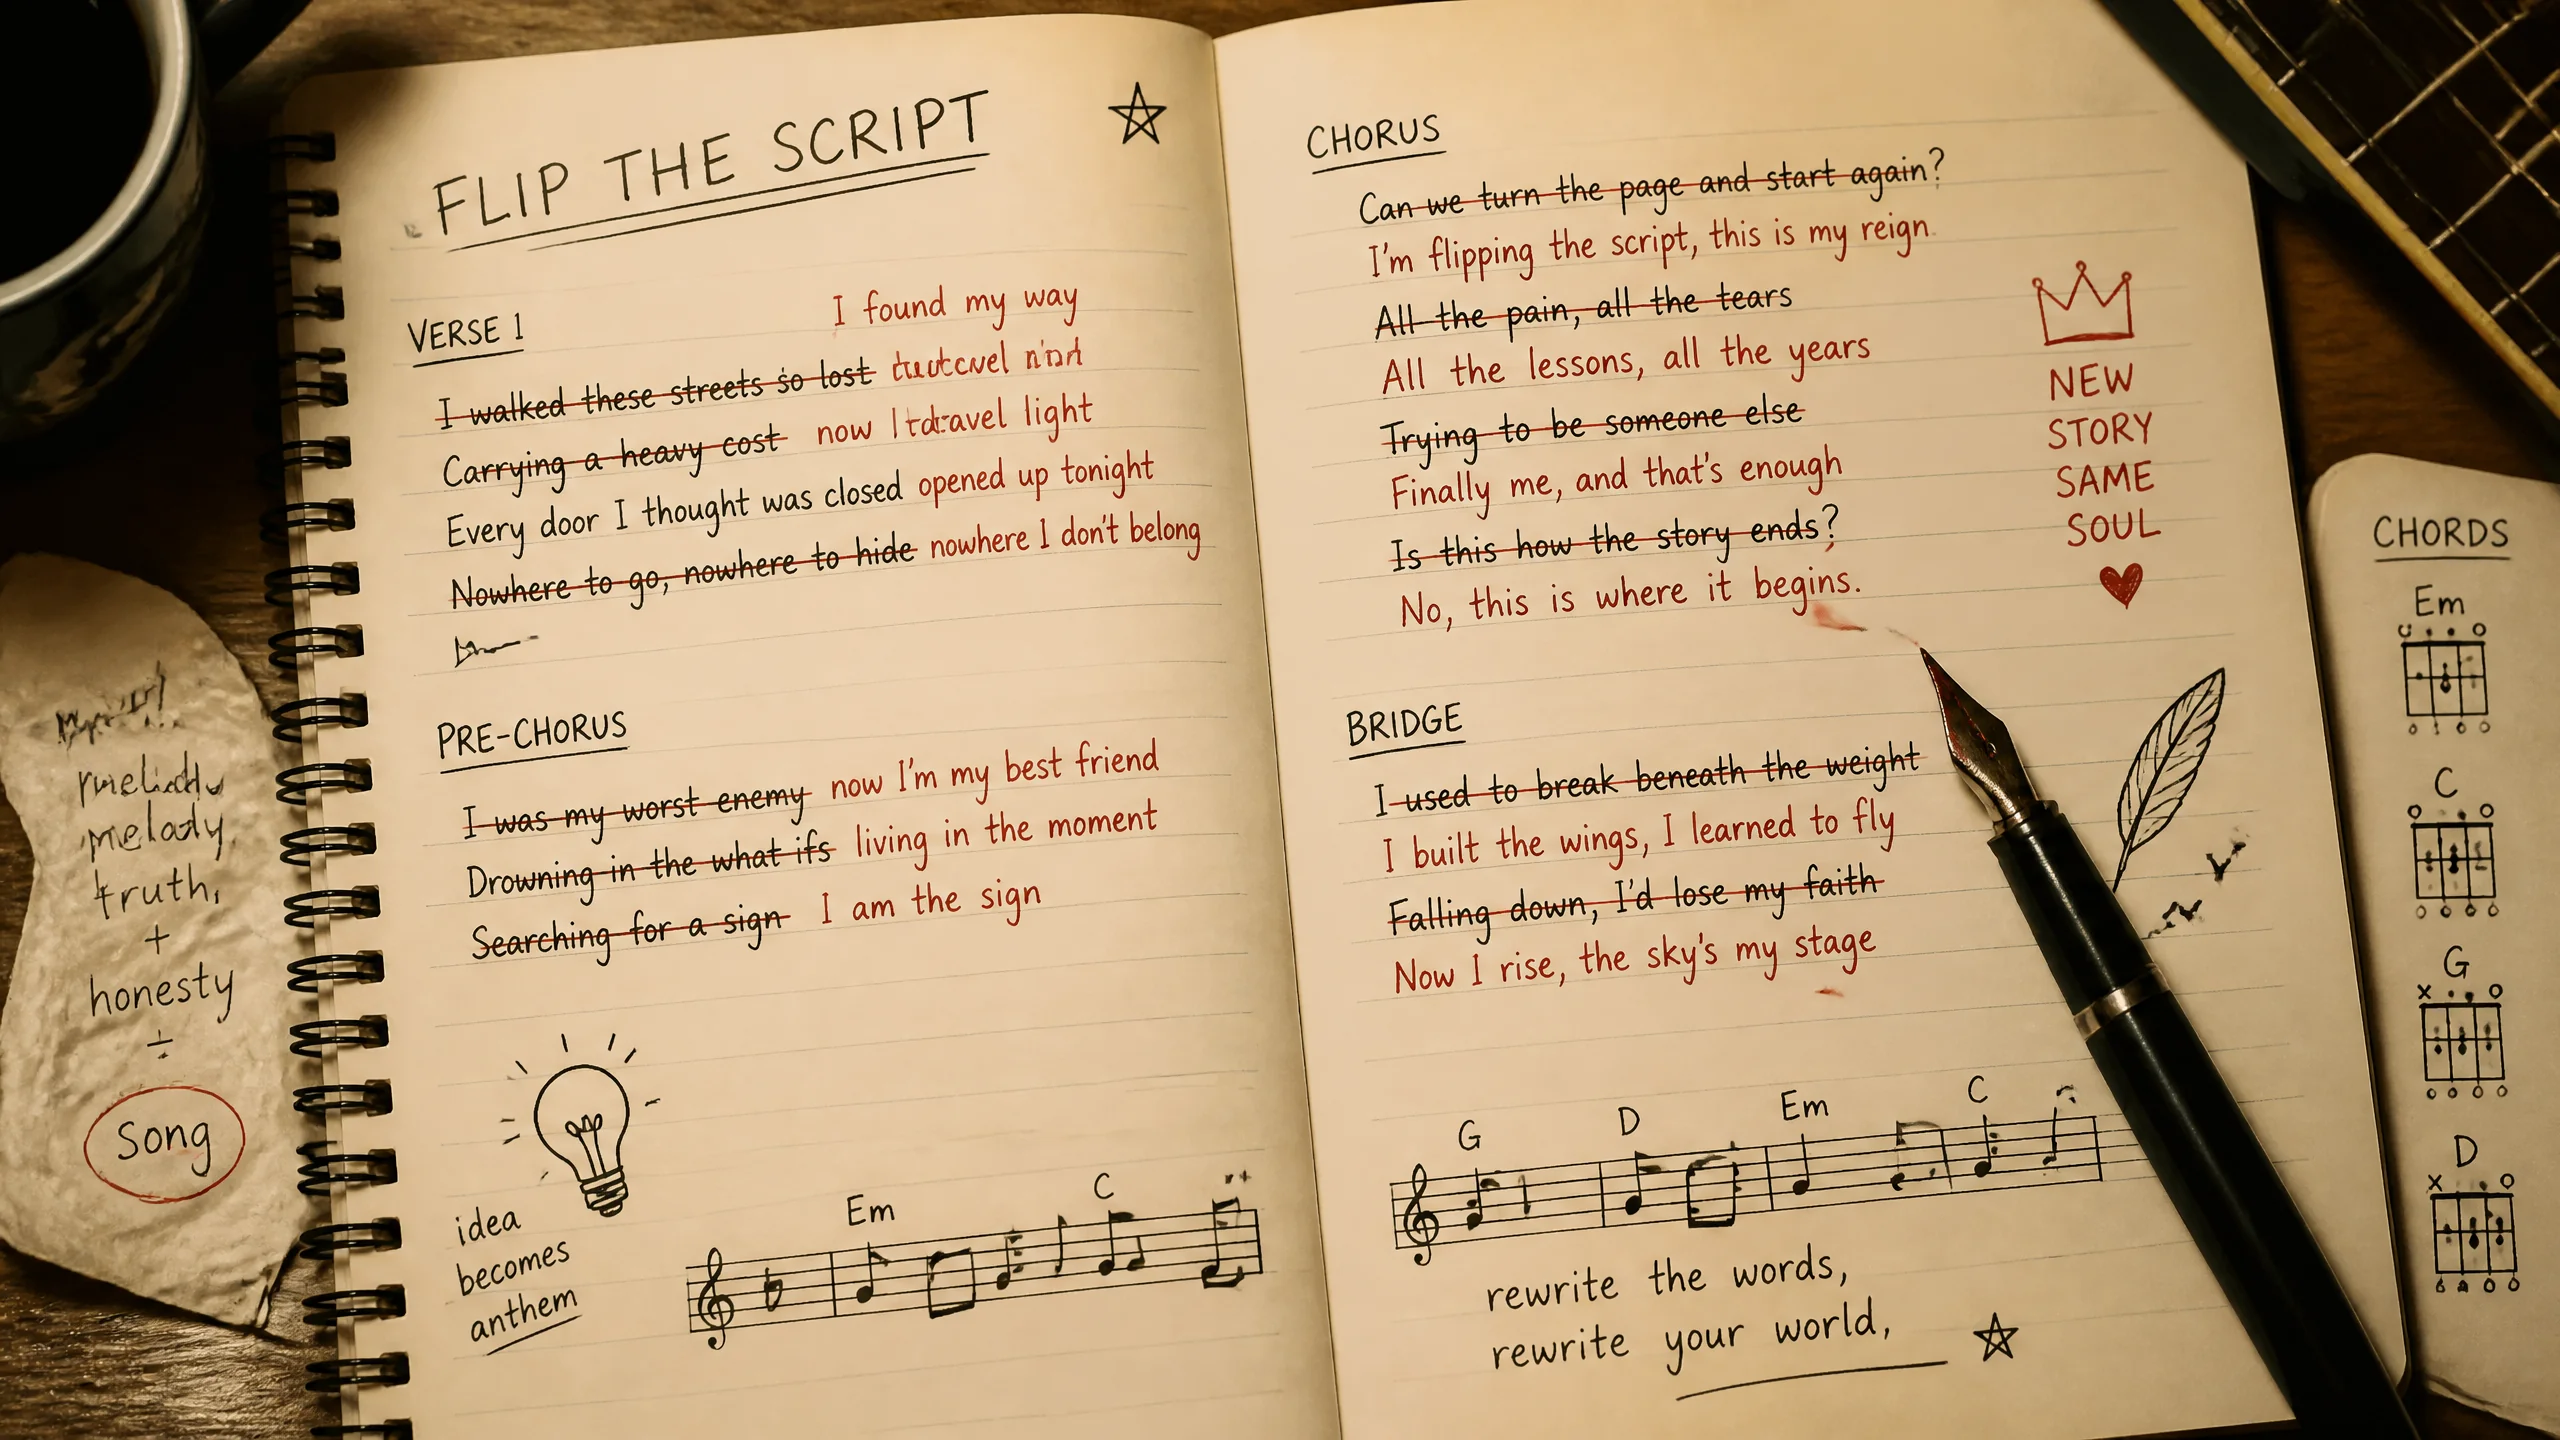 FLIP THE SCRIPT
VERSE 1
I found my way
I walked these streets so lost
Carrying a heavy cost now light
Every door I thought was closed opened up tonight
Nowhere to go, nowhere to hide nowhere I don't belong
PRE-CHORUS
I was my worst enemy now I'm my best friend
Drowning in the what ifs living in the moment
Searching for a sign I am the sign
idea
becomes
anthem
Em C
CHORUS
Can we turn the page and start again?
I'm flipping the script, this is my reign
All the pain, all the tears
All the lessons, all the years
Trying to be someone else
Finally me, and that's enough
Is this how the story ends?
No, this is where it begins.
NEW
STORY
SAME
SOUL
BRIDGE
I used to break beneath the weight
I built the wings, I learned to fly
Falling down, I'd lose my faith
Now I rise, the sky's my stage
G D Em C
rewrite the words,
rewrite your world,
melody
truth,
+
honesty
÷
Song
CHORDS
Em
C
G
D